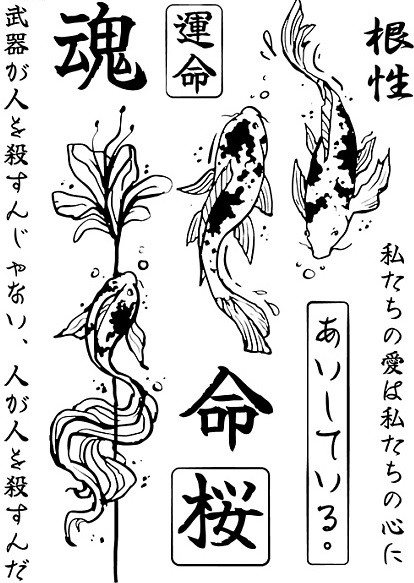 根性
運命
魂
武器が人を殺すんじゃない、人が人を殺すんだ
私たちの愛は私たちの心に
あいしている。
命
桜